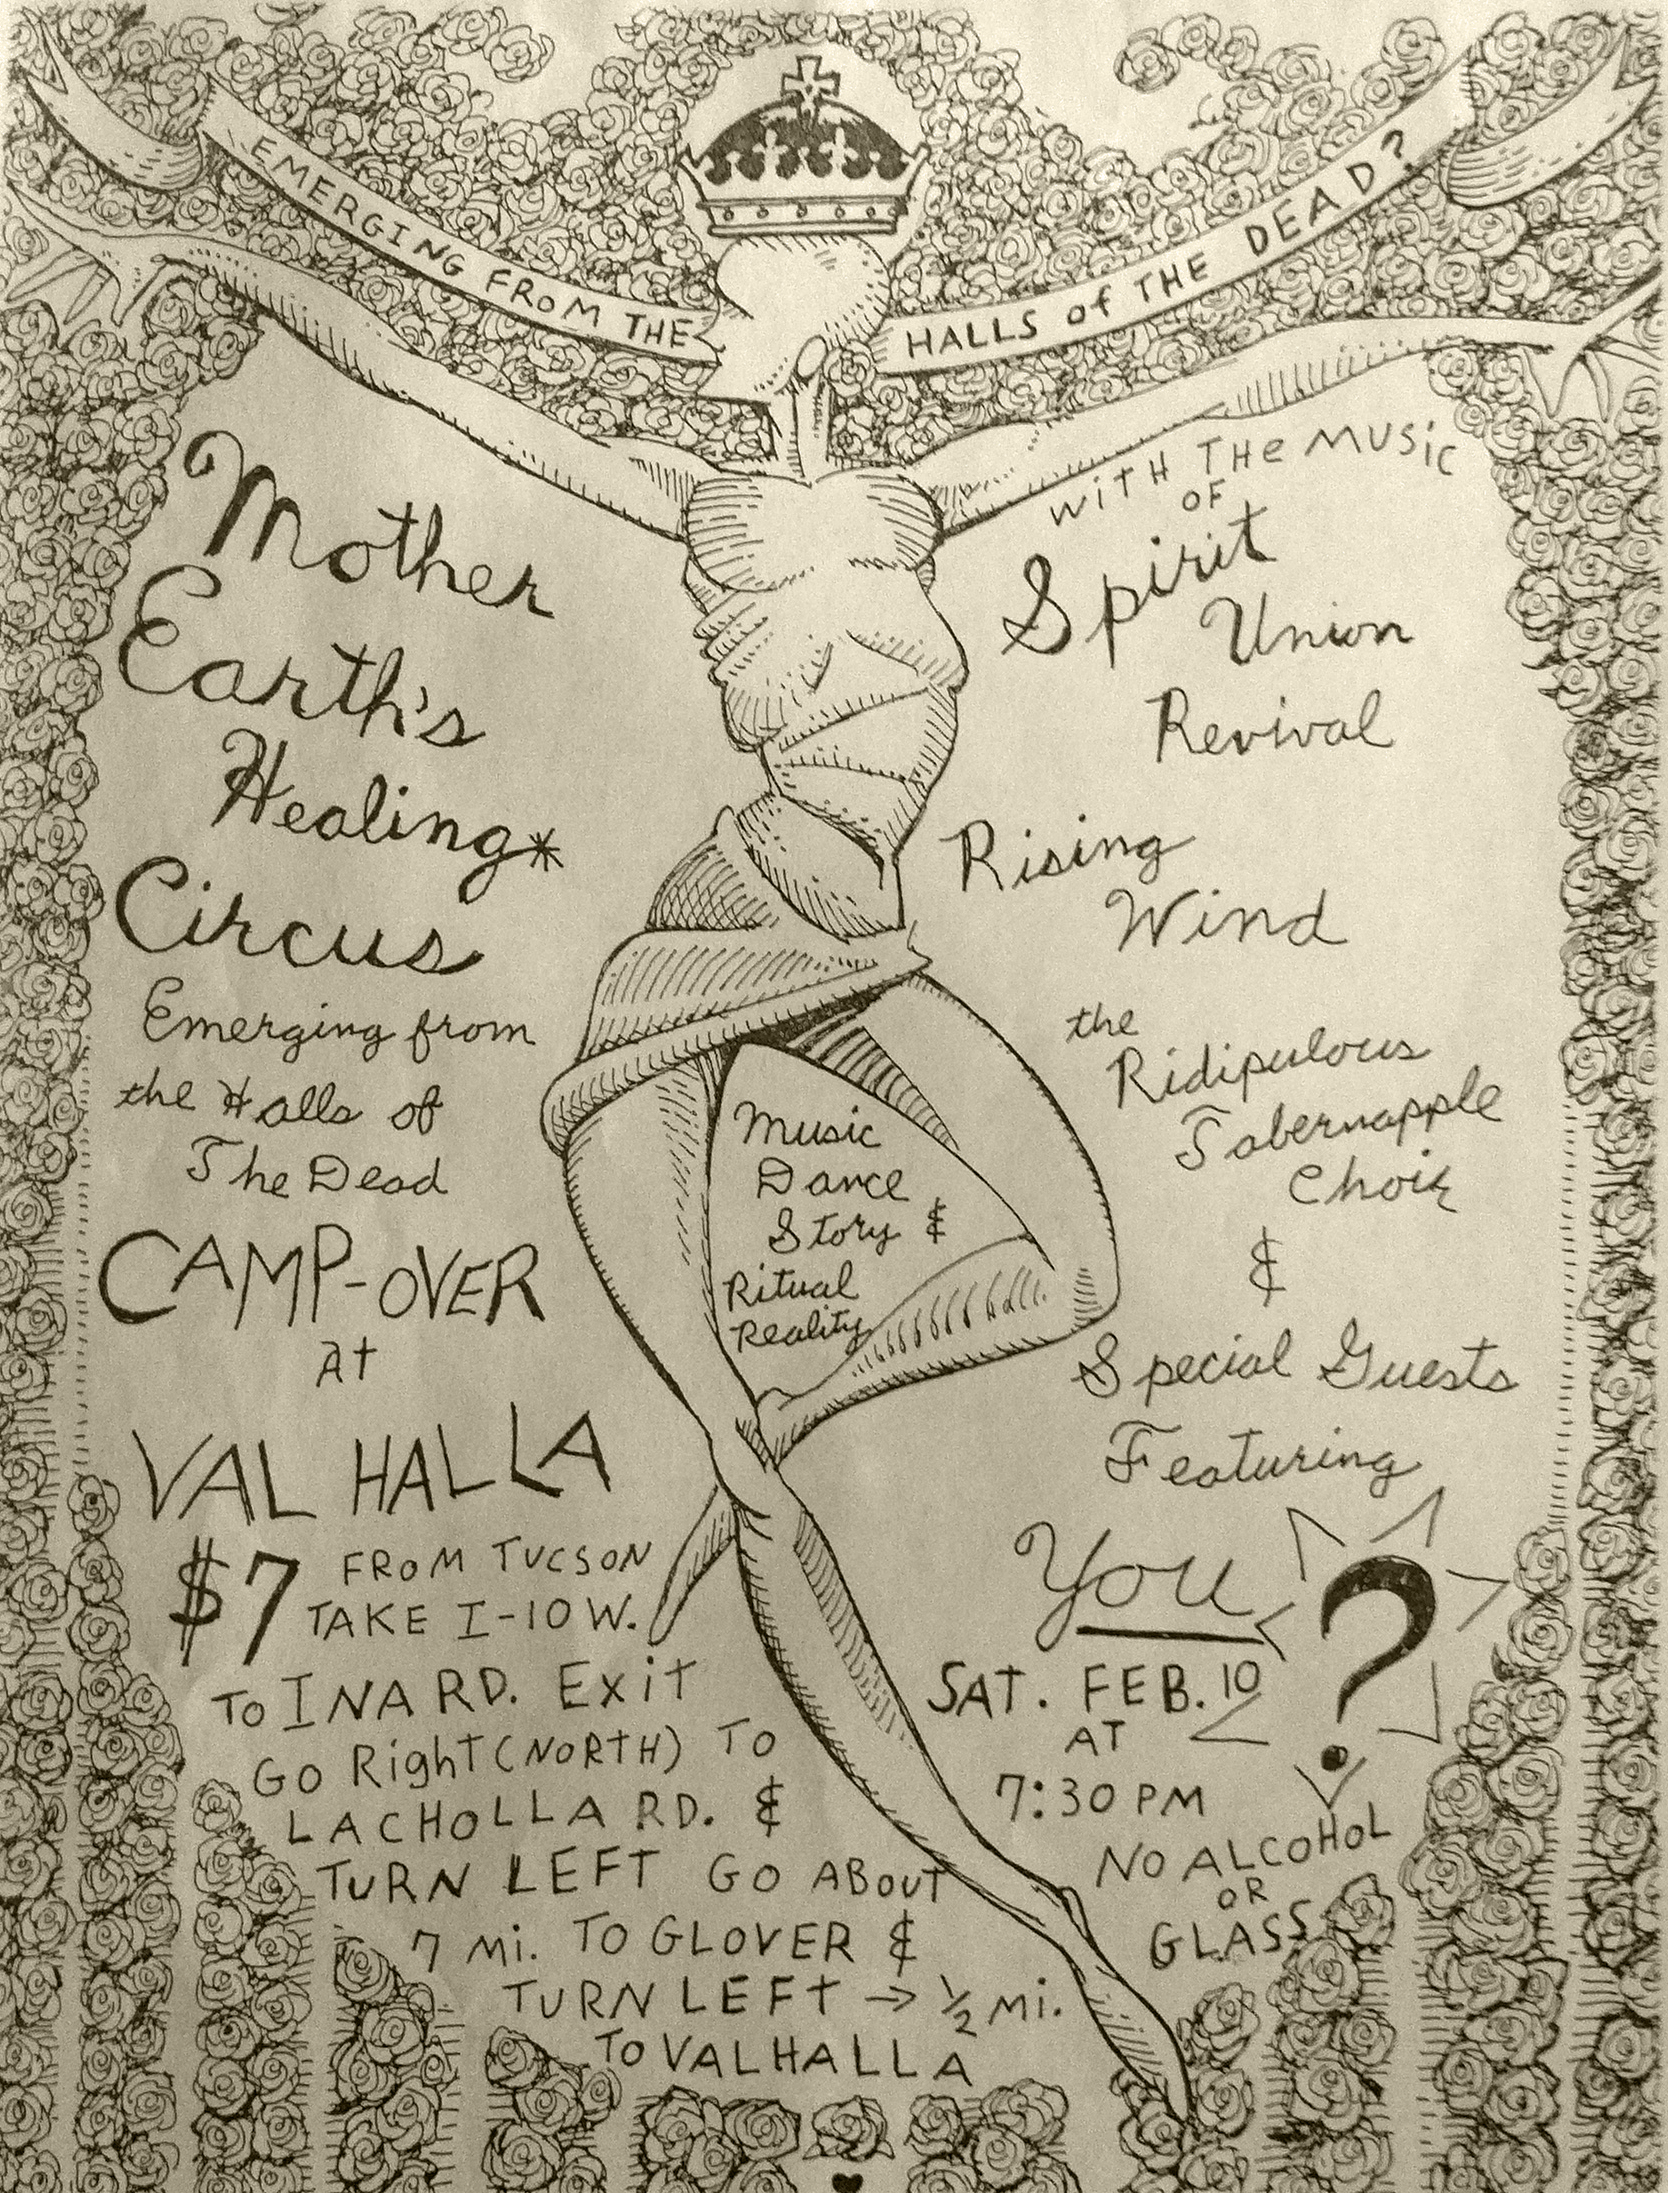 EMERGING FROM THE HALLS of THE DEAD?
Mother
Earth's
Healing*
Circus
Emerging from
the Halls of
The Dead
CAMP-OVER
At
VAL HALLA
$7 FROM TUCSON
TAKE I-10 W.
To INA RD. Exit
Go Right (NORTH) To
LACHOLLA RD. &
TURN LEFT GO ABOUT
7 Mi. TO GLOVER &
TURN LEFT → ½ Mi.
To VALHALLA
Music
Dance
Story &
Ritual
Reality
WITH THe MUSiC
OF
Spirit
Union
Revival
Rising
Wind
the
Ridipulous
Tabernapple
Choir
&
Special Guests
Featuring
You ?
SAT. FEB. 10
AT
7:30 PM
NO ALCOHOL
OR
GLASS